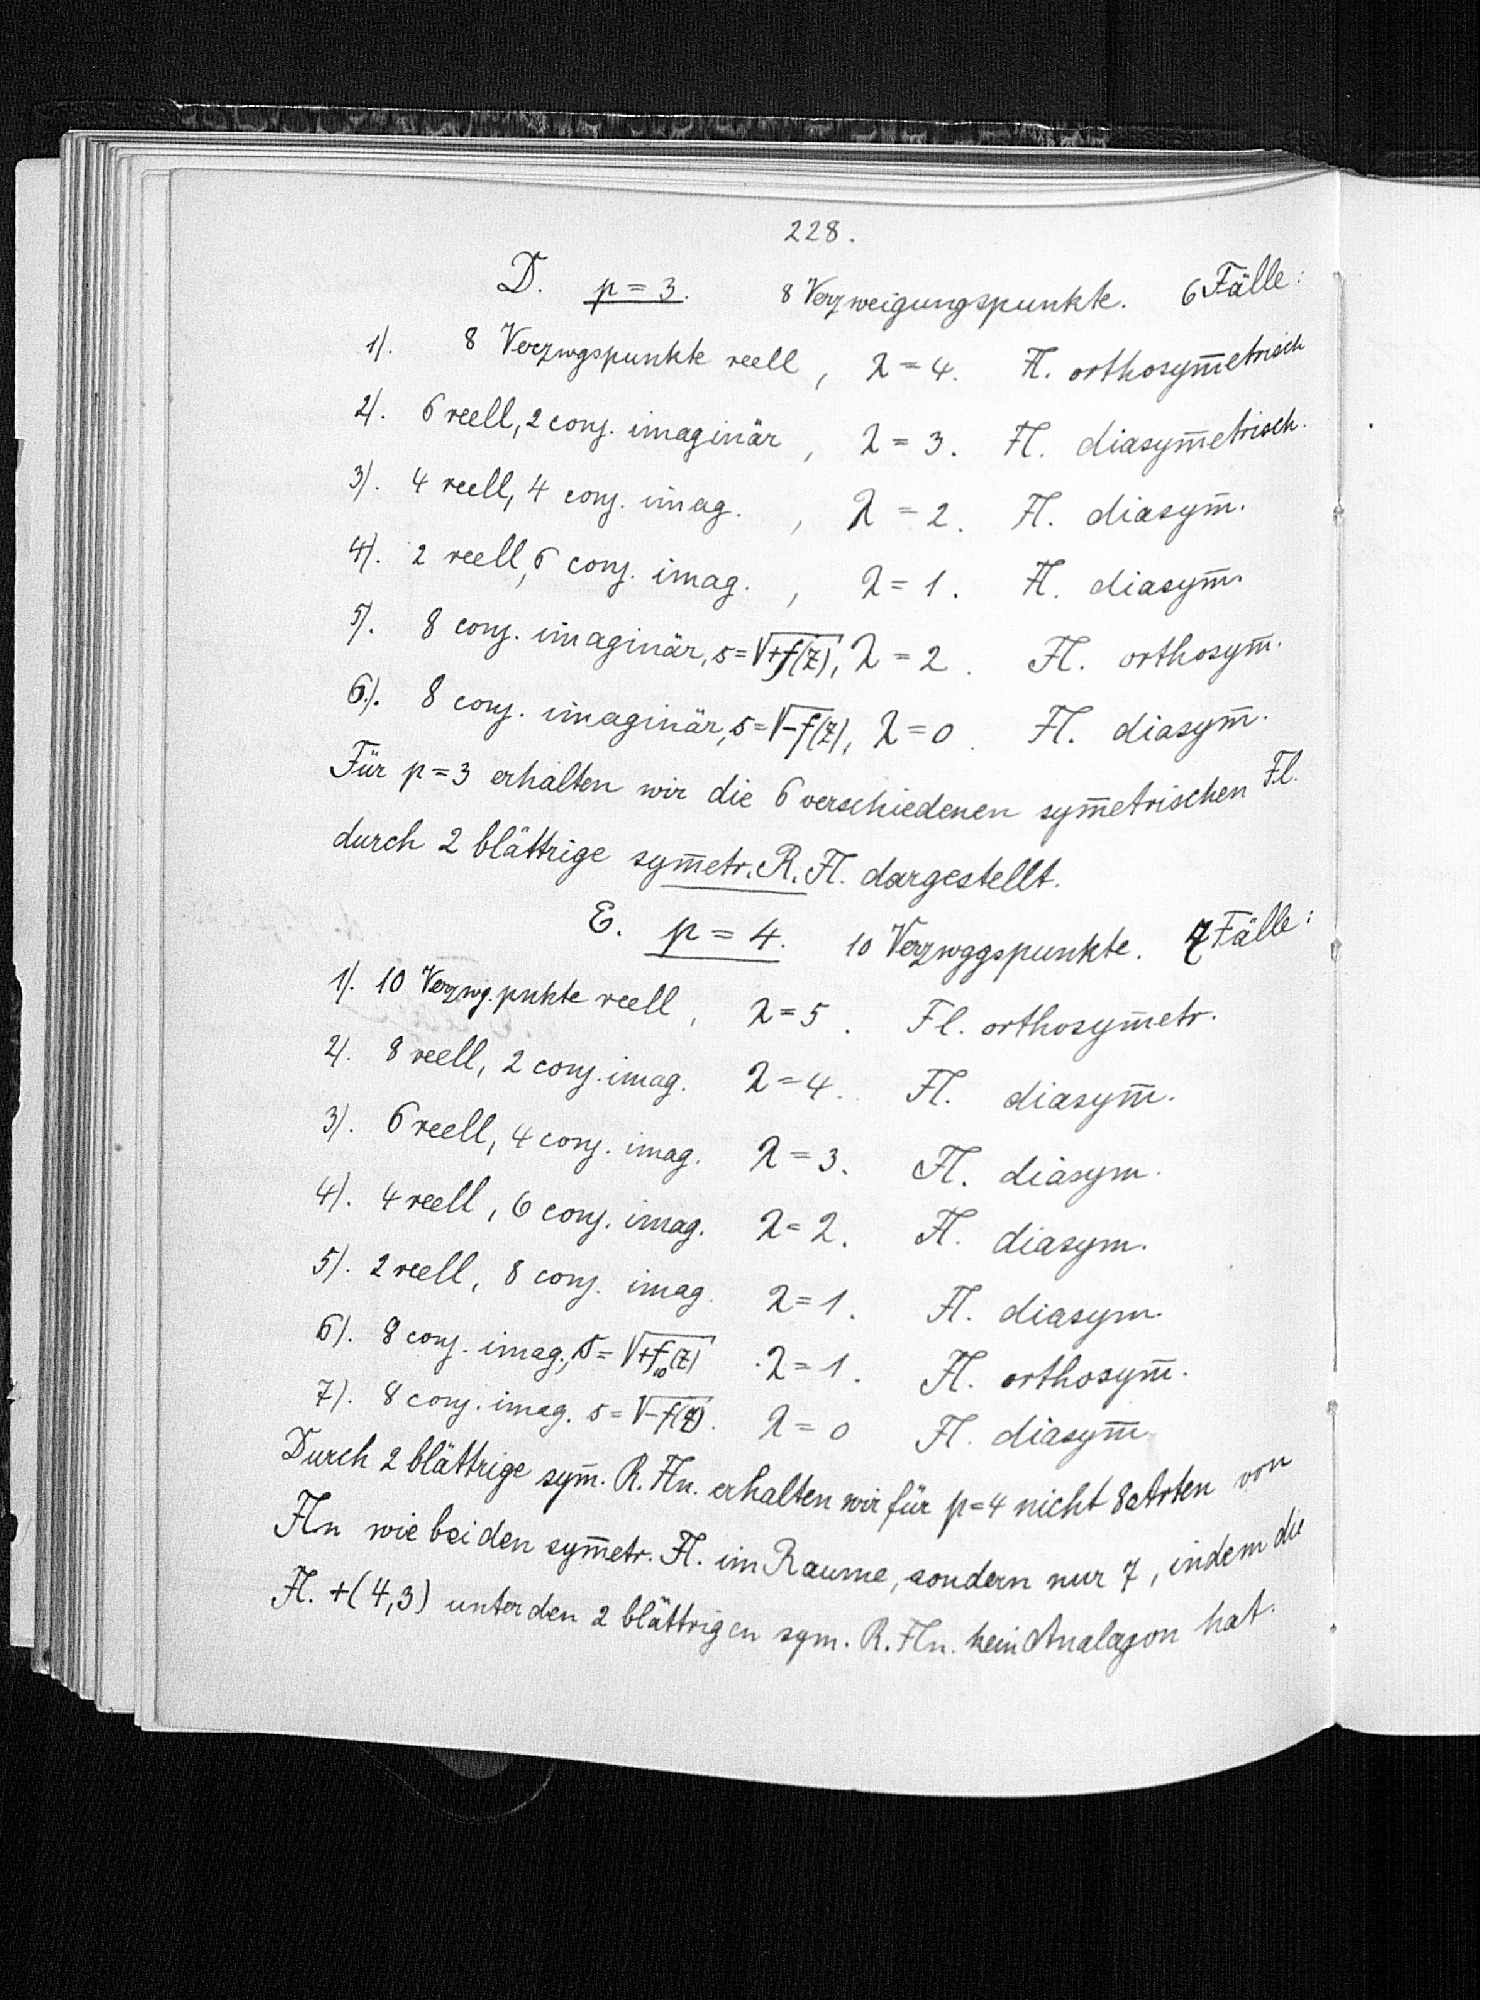 228.
D. p = 3. 8 Verzweigungspunkte. 6 Fälle:
1). 8 Verzwgspunkte reell, λ = 4. Fl. orthosym̄etrisch
2). 6 reell, 2 conj. imaginär, λ = 3. Fl. diasym̄etrisch.
3). 4 reell, 4 conj. imag., λ = 2. Fl. diasym̄.
4). 2 reell, 6 conj. imag., λ = 1. Fl. diasym̄.
5). 8 conj. imaginär, s = √+f(z), λ = 2. Fl. orthosym̄.
6). 8 conj. imaginär, s = √-f(z), λ = 0. Fl. diasym̄.
Für p = 3 erhalten wir die 6 verschiedenen sym̄etrischen Fl.
durch 2 blättrige sym̄etr. R. Fl. dargestellt.
E. p = 4. 10 Verzwggspunkte. 7 Fälle:
1). 10 Verzwg.pnkte reell, λ = 5. Fl. orthosym̄etr.
2). 8 reell, 2 conj. imag. λ = 4. Fl. diasym̄.
3). 6 reell, 4 conj. imag. λ = 3. Fl. diasym.
4). 4 reell, 6 conj. imag. λ = 2. Fl. diasym.
5). 2 reell, 8 conj. imag. λ = 1. Fl. diasym.
6). 8 conj. imag., s = √+f₁₀(z) λ = 1. Fl. orthosym̄.
7). 8 conj. imag. s = √-f(z). λ = 0 Fl. diasym̄
Durch 2 blättrige sym̄. R. Fln. erhalten wir für p = 4 nicht 8 Arten von
Fln wie bei den sym̄etr. Fl. im Raume, sondern nur 7, indem die
Fl. +(4,3) unter den 2 blättrigen sym. R. Fln. kein Analogon hat.